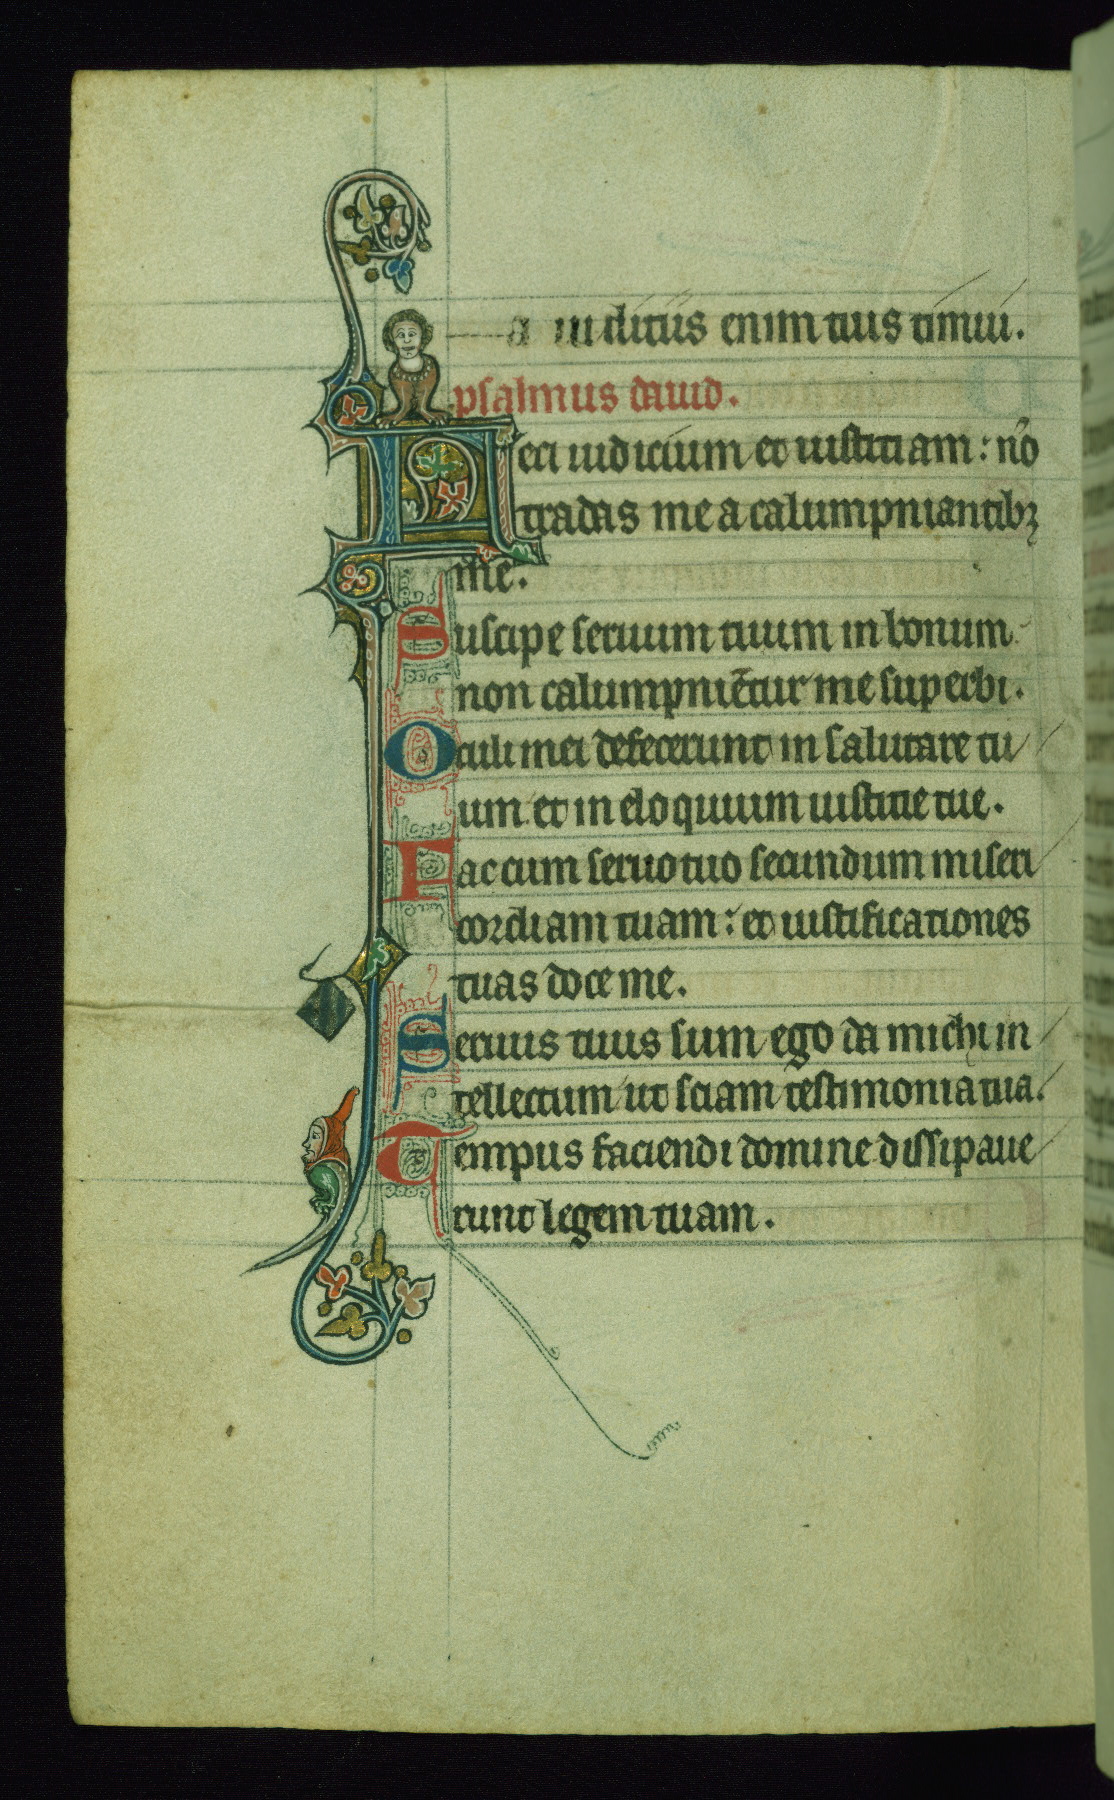 a iudiciis enim tuis timui.
psalmus dauid.
Feci iudicium et iusticiam: nō
tradas me a calumpniantibꝫ
me.
Suscipe seruum tuum in bonum
non calumpniētur me superbi.
Oculi mei defecerunt in salutare tu
um et in eloquium iusticie tue.
Fac cum seruo tuo secundum miseri
cordiam tuam: et iustificationes
tuas doce me.
Seruus tuus sum ego da michi in
tellectum ut sciam testimonia tua.
Tempus faciendi domine dissipaue
runt legem tuam.